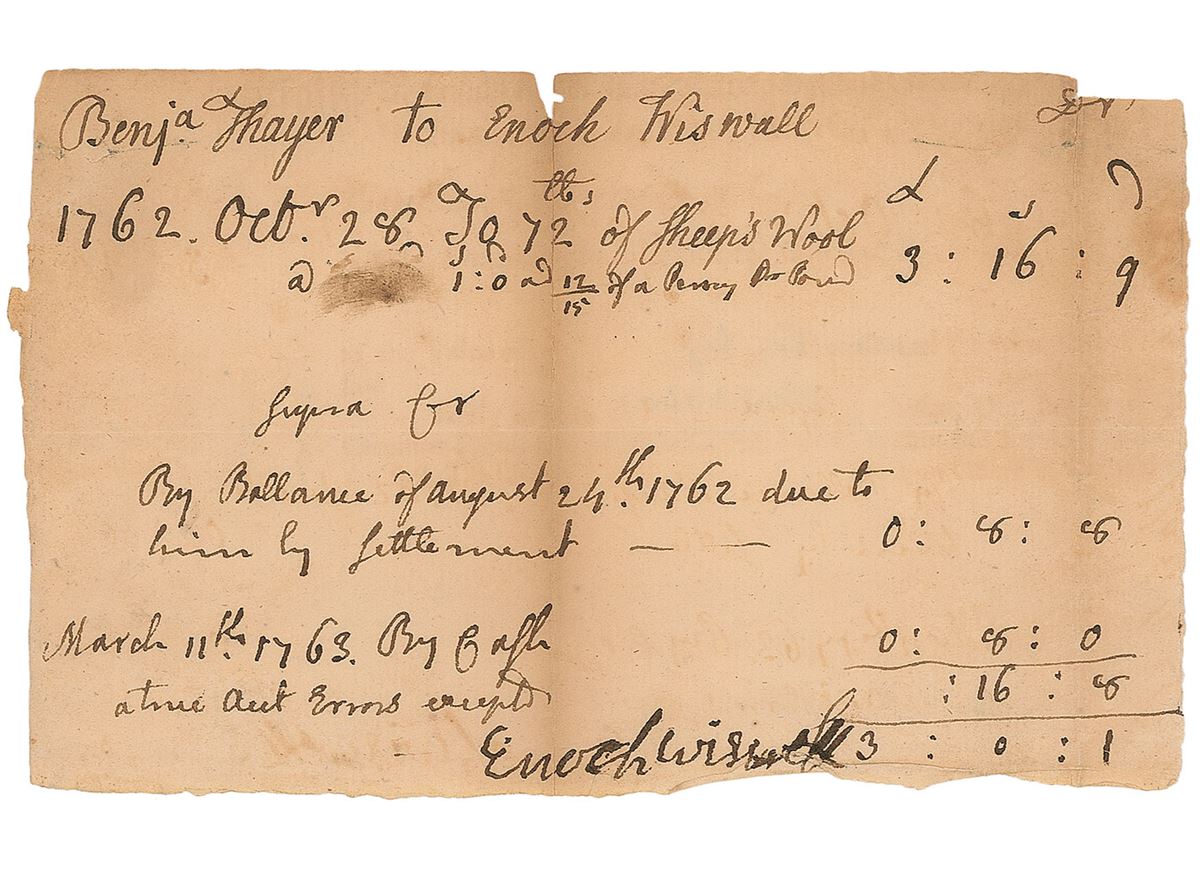 Benjᵃ Thayer to Enoch Wiswall Dr
£ s D
1762. Octʳ 28 To 72 lbs of Sheep's Wool
a 1:0 ad 12/15 of a Penny Pr Pound 3 : 16 : 9
Supra Cr
By Ballance of august 24ᵗʰ 1762 due to
him by settlement — — 0 : 8 : 8
March 11ᵗʰ 1763. By Cash 0 : 8 : 0
: 16 : 8
a true Acct Errors exceptd
Enoch Wiswall 3 : 0 : 1